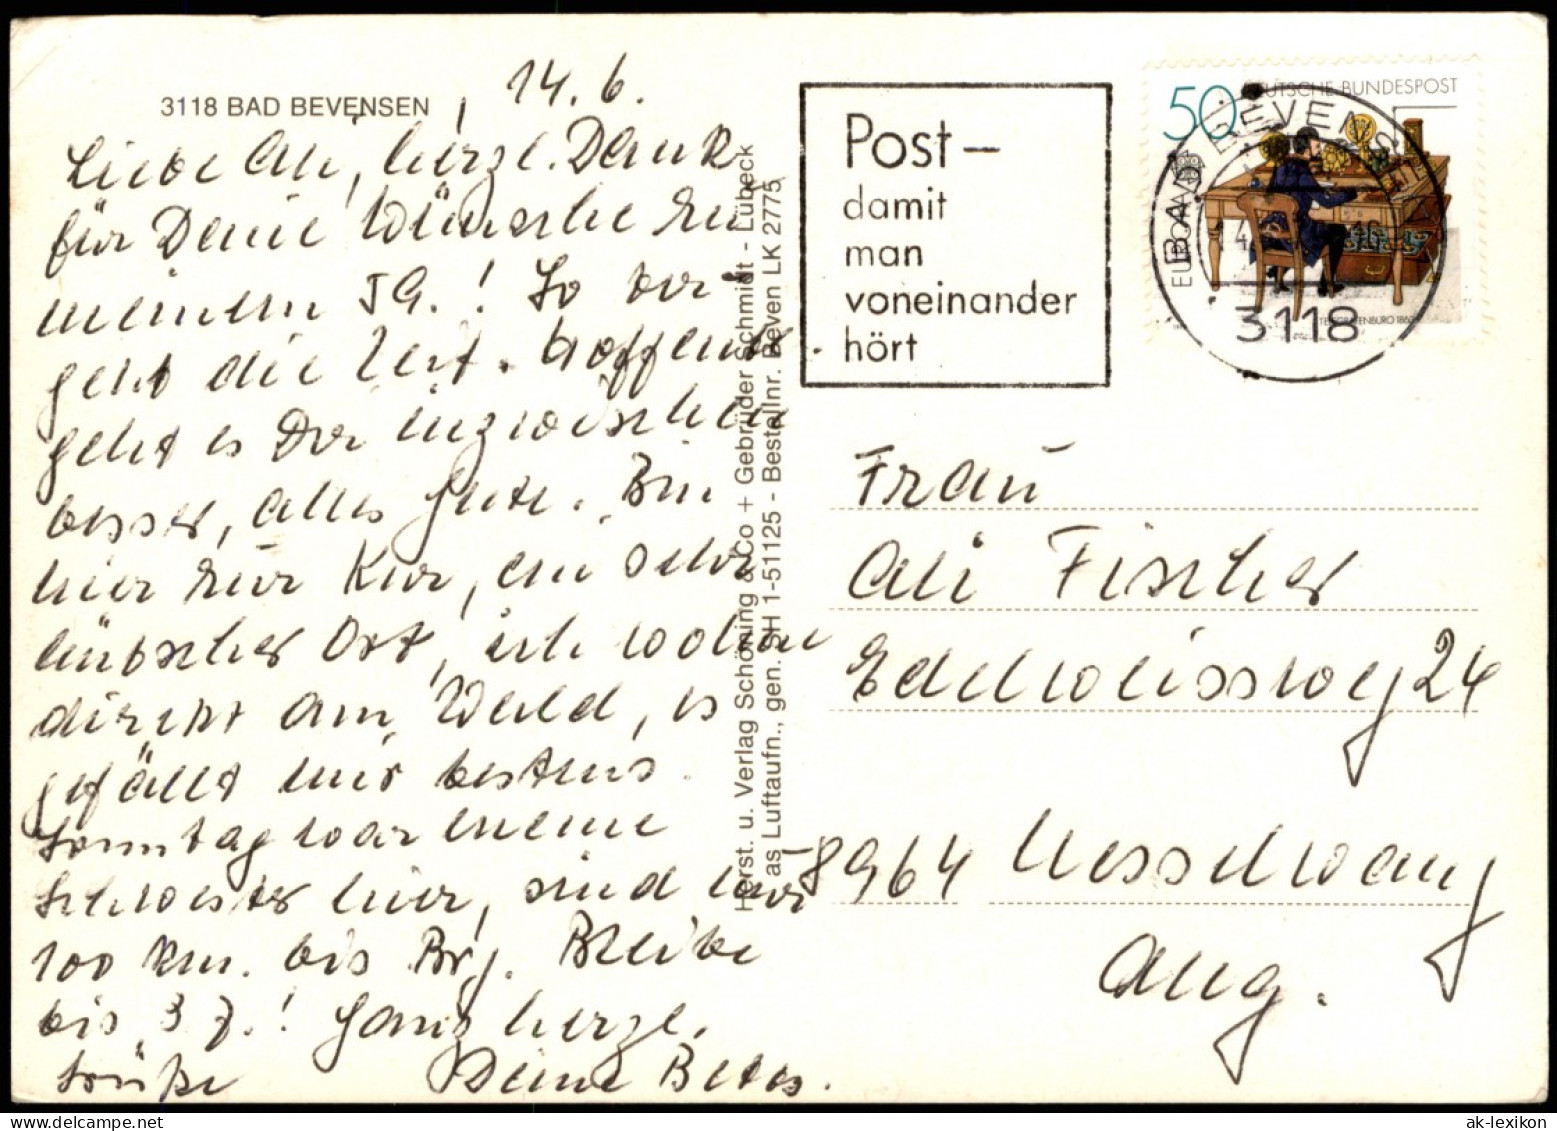 3118 BAD BEVENSEN
14.6.
Liebe Ali, herzl. Dank
für Deine Wünsche zu
meinem JG.! So ver-
geht die Zeit. Hoffentl.
geht es Dir inzwischen
besser, alles Gute. Bin
hier zur Kur, ein sehr
hübscher Ort, ich wohne
direkt am Wald, es
gefällt mir bestens.
Sonntag war meine
Schwester hier, sind nur
100 km. bis Brg. Bleibe
bis 3.7.! Ganz herzl.
Grüße Deine
Horst. u. Verlag Schöning & Co + Gebrüder Schmidt - Lübeck
as Luftaufn., gen. SH 1-51125 - Bestellnr. Beven LK 2775
Post -
damit
man
voneinander
hört
50 DEUTSCHE BUNDESPOST
EUROPA
TELEGRAFENBÜRO 1863
BAD BEVENSEN
3118
Frau
Ali Fischer
Edelweissweg 24
8964 Nesselwang
Allg.
ak-lexikon.com